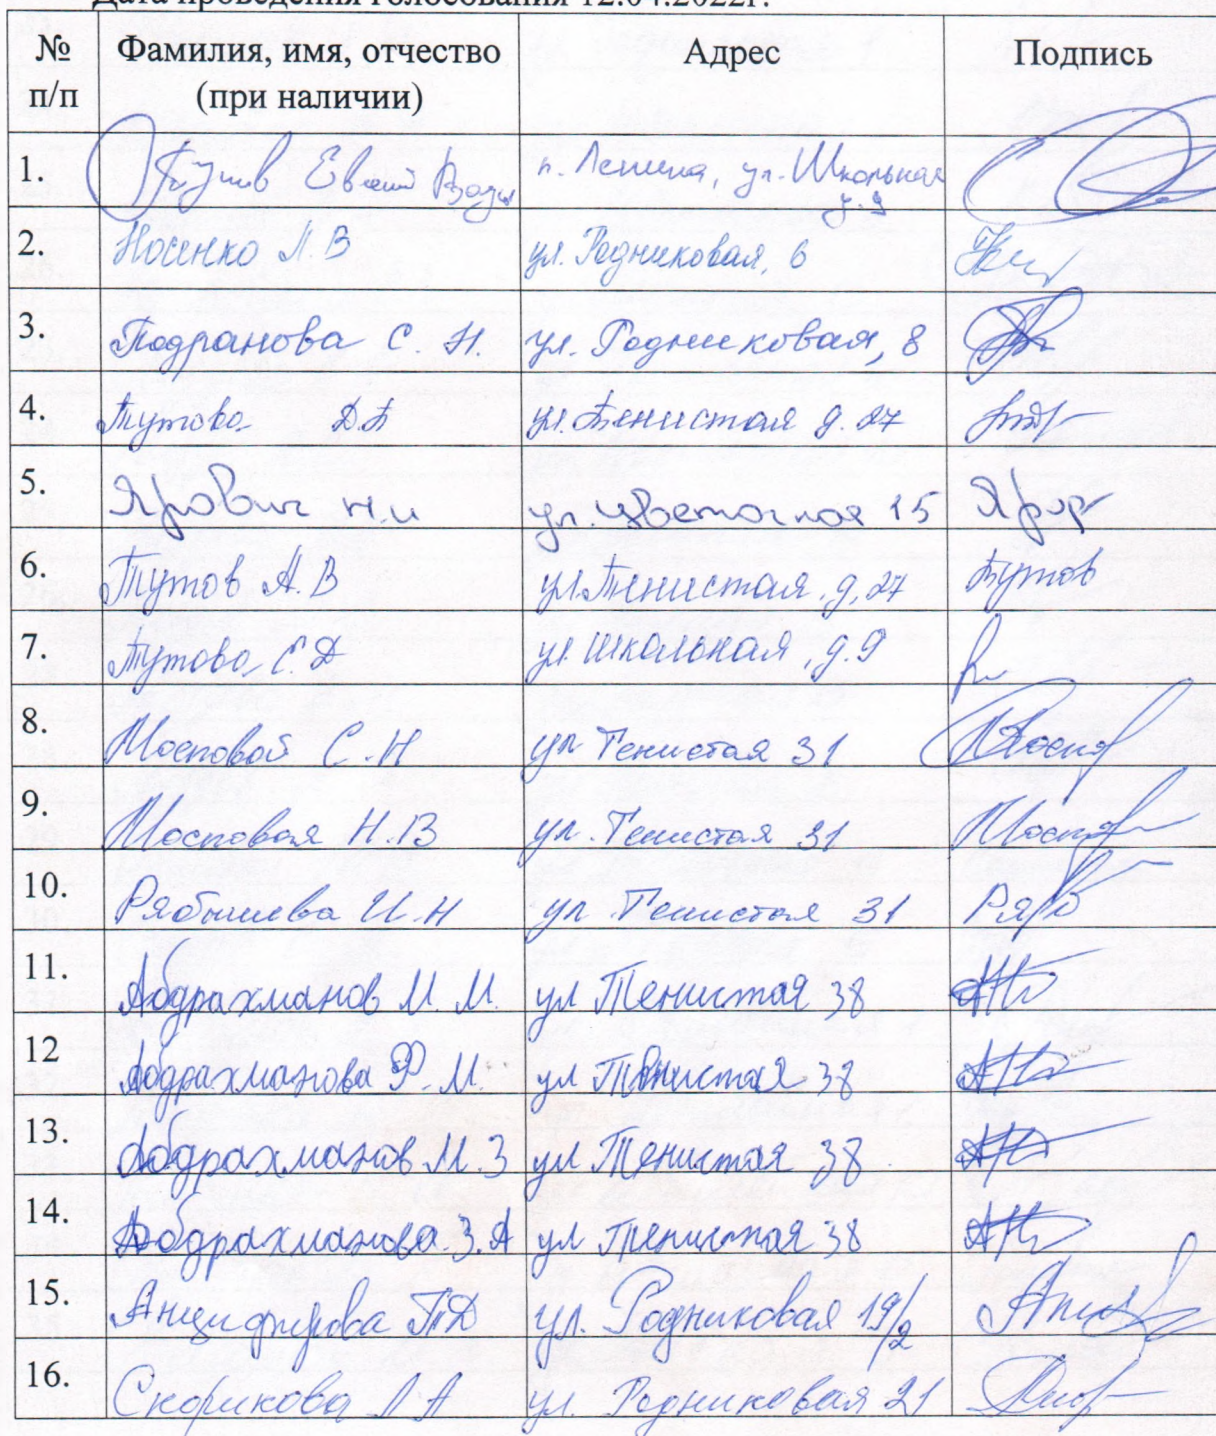 Дата проведения голосования 12.04.2022г.
№ п/п Фамилия, имя, отчество (при наличии) Адрес Подпись
1. п. Ленина, ул. Школьная д. 9
2. Носенко Л. В ул. Родниковая, 6
3. Подранова С. Н. ул. Родниковая, 8
4. Тутова Д.Б ул. Тенистая д. 27
5. Ярович Н.и ул. Цветочная 15
6. Тутов А.В ул. Тенистая, д, 27 Тутов
7. Тутова С.Д ул. Школьная, д. 9
8. Посповой С.Н ул Тенистая 31
9. Посповая Н.В ул. Тенистая 31
10. Рябышева И.Н ул Тенистая 31
11. Абдрахманов М. М. ул Тенистая 38
12 Абдрахманова Ф. М. ул Тенистая 38
13. Абдрахманов М. З ул Тенистая 38
14. Абдрахманова З. А ул Тенистая 38
15. Анциферова Т Д ул. Родниковая 19/2
16. Скорикова Л А ул. Родниковая 21